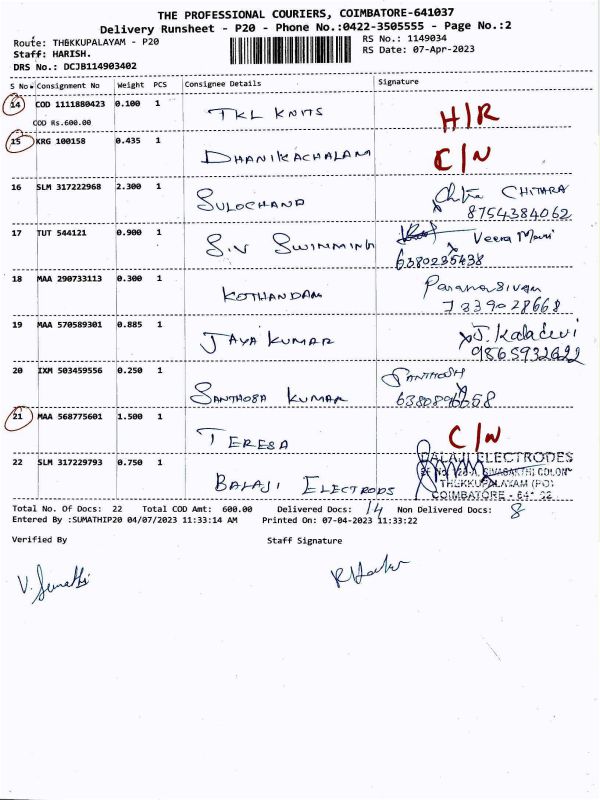 THE PROFESSIONAL COURIERS, COIMBATORE-641037
Delivery Runsheet - P20 - Phone No.:0422-3505555 - Page No.:2
Route: THEKKUPALAYAM - P20
RS No.: 1149034
Staff: HARISH.
RS Date: 07-Apr-2023
DRS No.: DCJB114903402
S No. Consignment No Weight PCS Consignee Details Signature
14 COD 1111880423 0.100 1 TKL KNITS H/R
COD Rs.600.00
15 KRG 100158 0.435 1 DHANIKACHALAM C/N
16 SLM 317222968 2.300 1 SULOCHANA Chitra CHITHRA
8754384062
17 TUT 544121 0.900 1 S.V SWIMMING Veera Mani
6380235438
18 MAA 290733113 0.300 1 KOTHANDAM Paramasivam
7339028668
19 MAA 570589301 0.885 1 JAYA KUMAR J. Kaladevi
9865932622
20 IXM 503459556 0.250 1 SANTHOSA KUMAR SANTHOSH
6380896258
21 MAA 568775601 1.500 1 TERESA C/N
22 SLM 317229793 0.750 1 BALAJI ELECTRODS
BALAJI ELECTRODES
SIVASAKTHI COLONY
THEKKUPALAYAM (PO)
COIMBATORE
Total No. Of Docs: 22 Total COD Amt: 600.00 Delivered Docs: 14 Non Delivered Docs: 8
Entered By :SUMATHIP20 04/07/2023 11:33:14 AM Printed On: 07-04-2023 11:33:22
Verified By Staff Signature
V. Sumathi